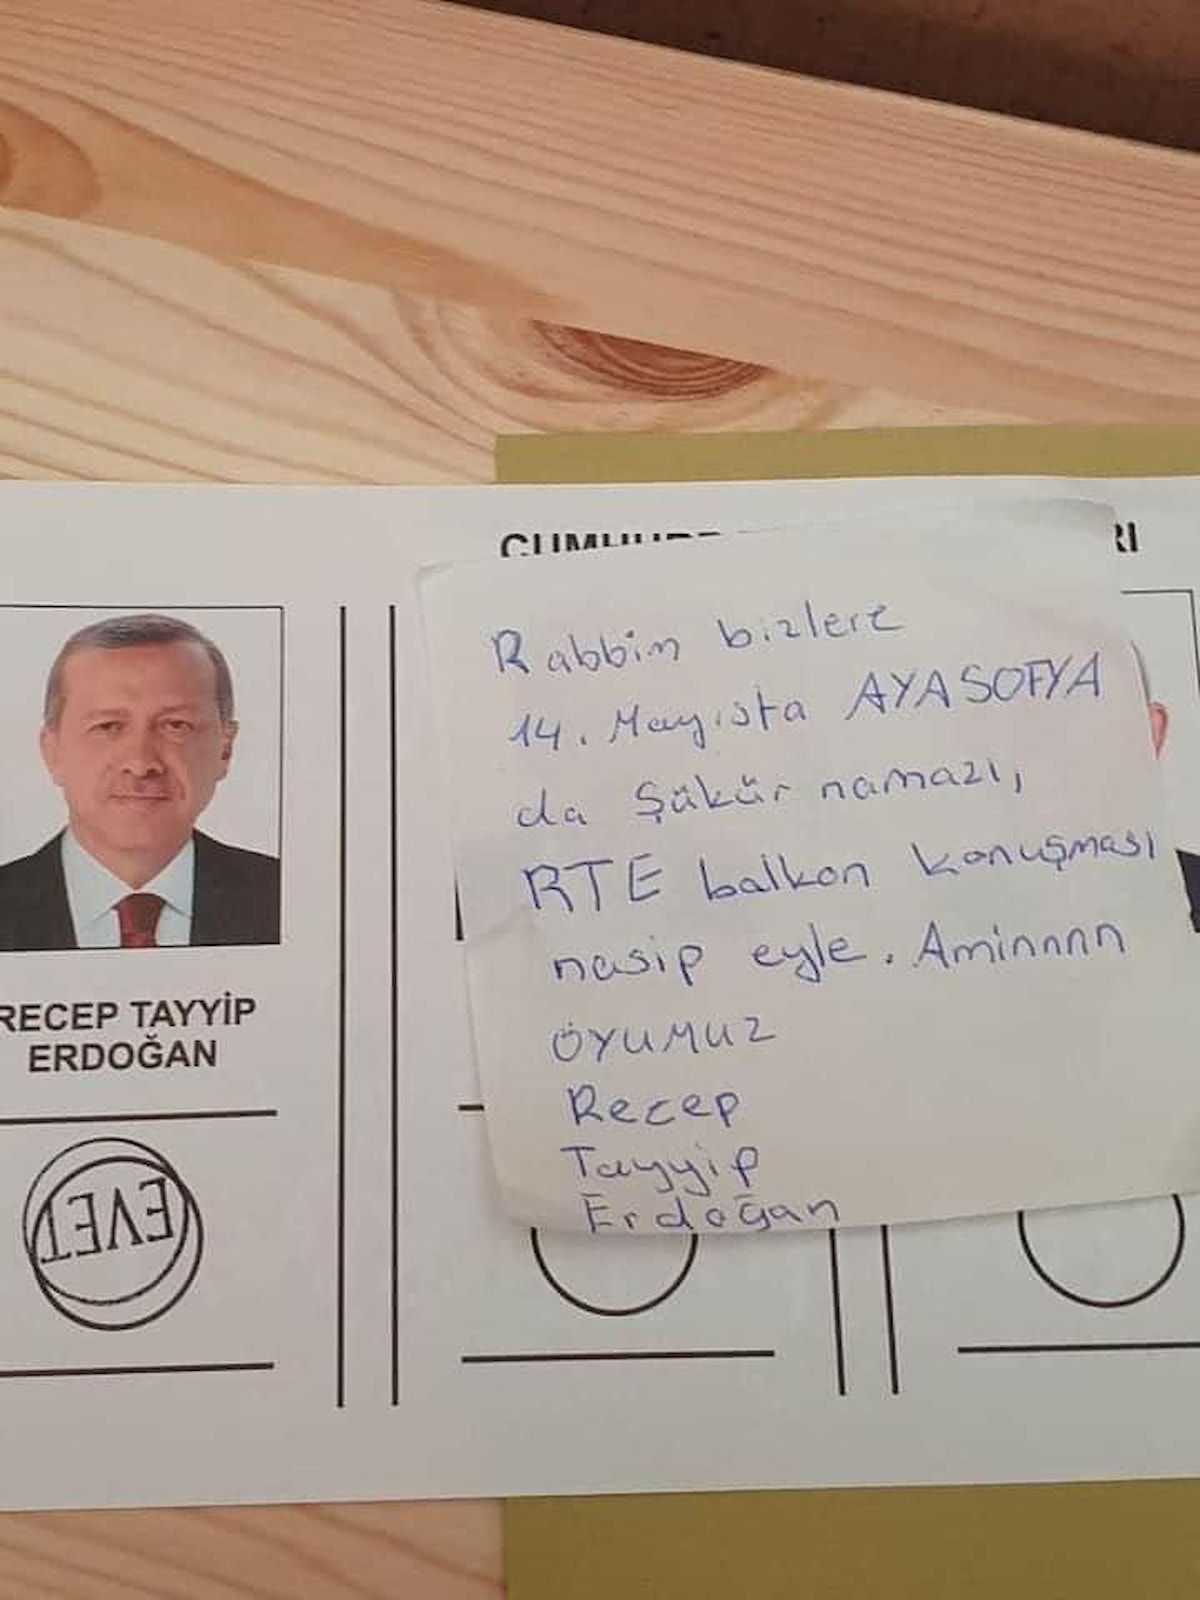 RECEP TAYYİP
ERDOĞAN
EVET
Rabbim bizlere
14. Mayısta AYASOFYA
da Şükür namazı,
RTE balkon konuşması
nasip eyle. Aminnnn
OYUMUZ
Recep
Tayyip
Erdoğan